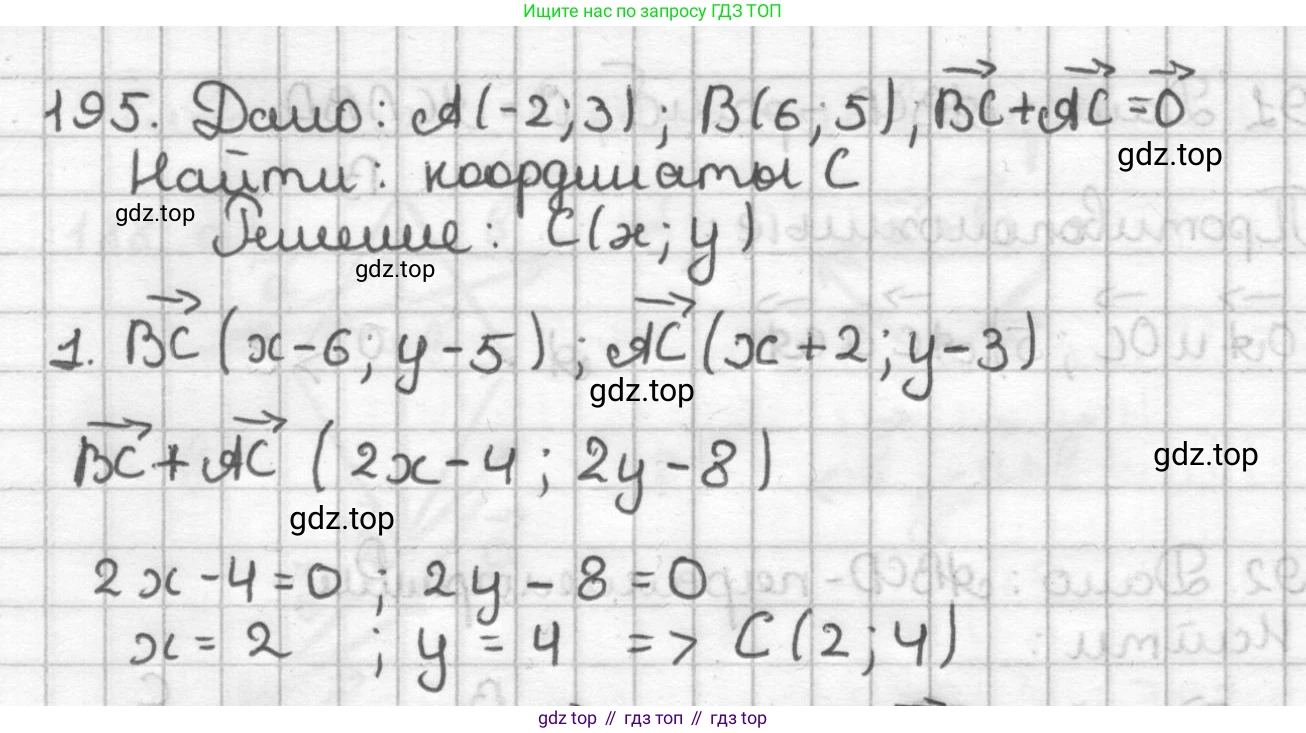 Ищите нас по запросу ГДЗ ТОП
195. Дано: A(-2;3); B(6;5); BC+AC=0
gdz.top
Найти: координаты C
gdz.top
Решение: C(x;y)
gdz.top
1. BC(x-6;y-5); AC(x+2;y-3)
gdz.top
BC+AC (2x-4;2y-8)
gdz.top
gdz.top
2x-4=0; 2y-8=0
x=2 ; y=4 => C(2;4)
gdz top // гдз топ // gdz top